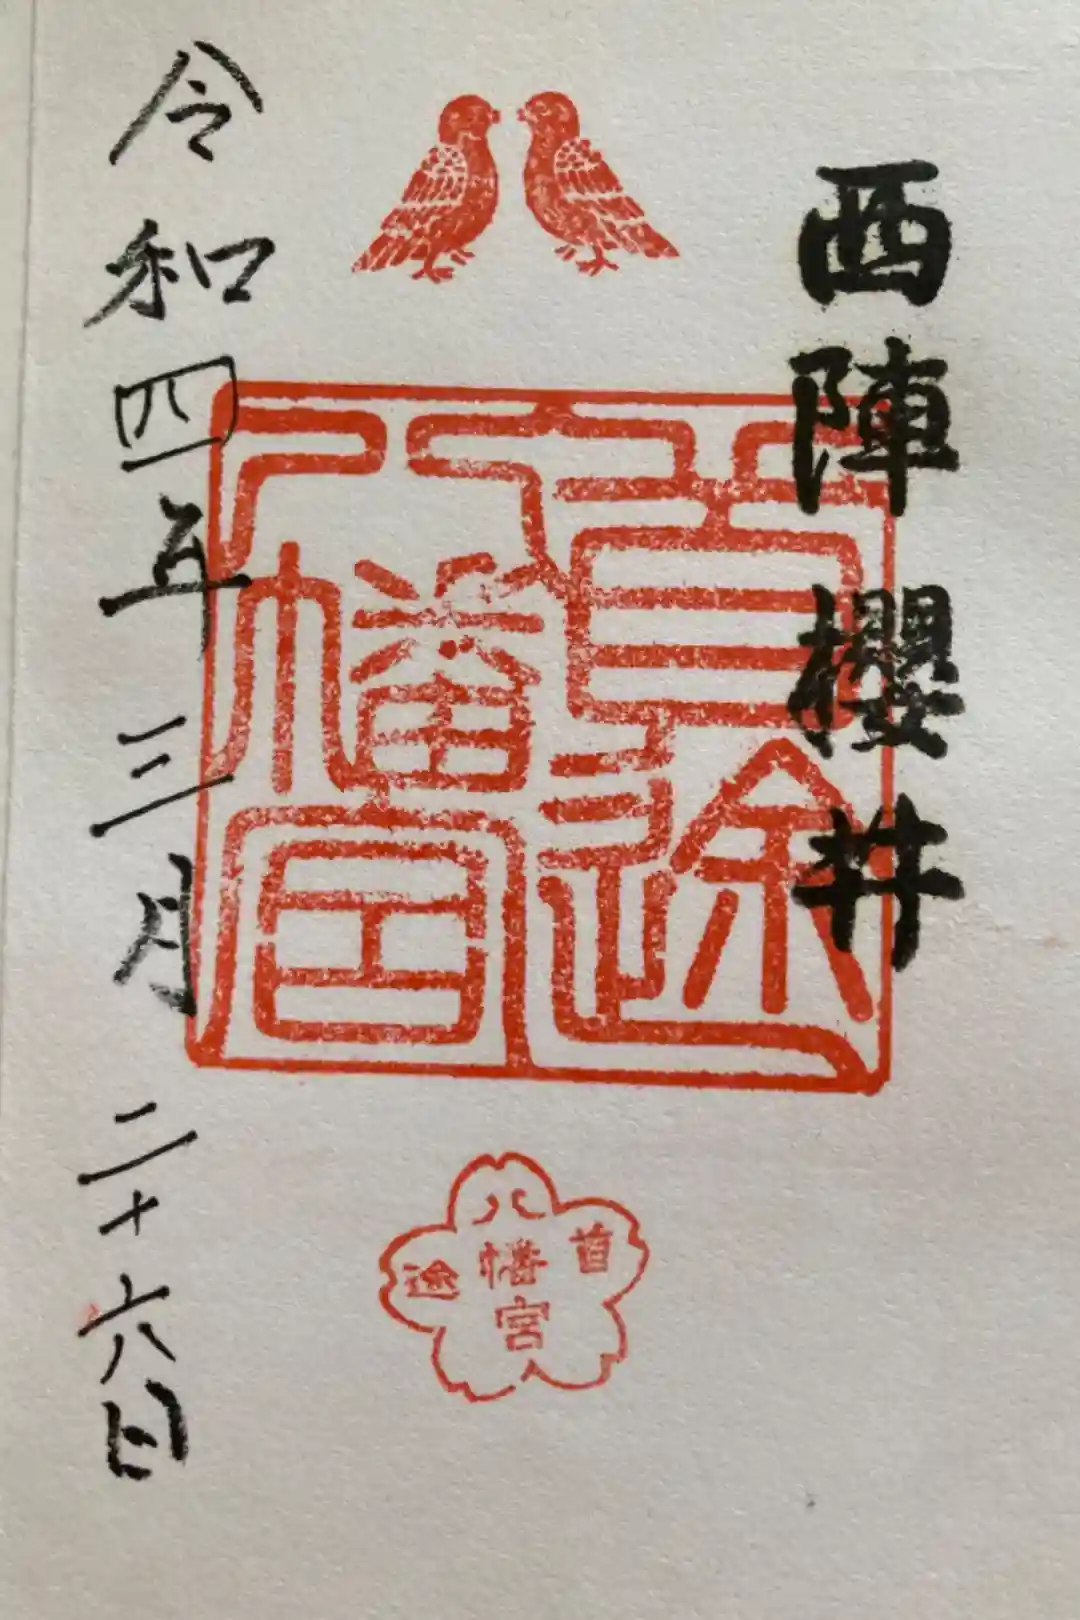 西陣櫻井
首途
八幡宮
令和四年三月二十六日
首途
八幡宮